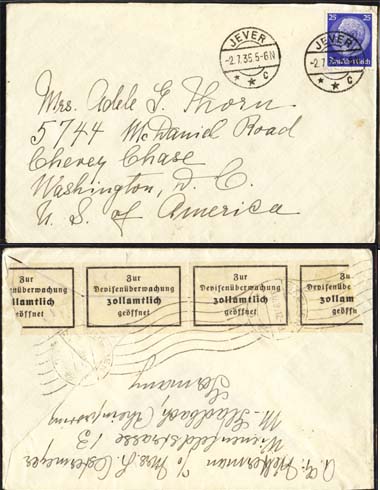 JEVER
-2.7.35.5-6N
* * c
JEVER
-2.7.
* * c
25 25
Deutsches Reich
Mrs. Adele G. Thorn
5744 McDaniel Road
Chevey Chase
Washington, D. C.
U. S. of America
Zur
Devisenüberwachung
zollamtlich
geöffnet
Zur
Devisenüberwachung
zollamtlich
geöffnet
Zur
Devisenüberwachung
zollamtlich
geöffnet
Zur
Devisenübe
zollam
geöffn
c/o Mrs. L. Ostermeyer
13
M-Gladbach, Rheinprovinz
Germany